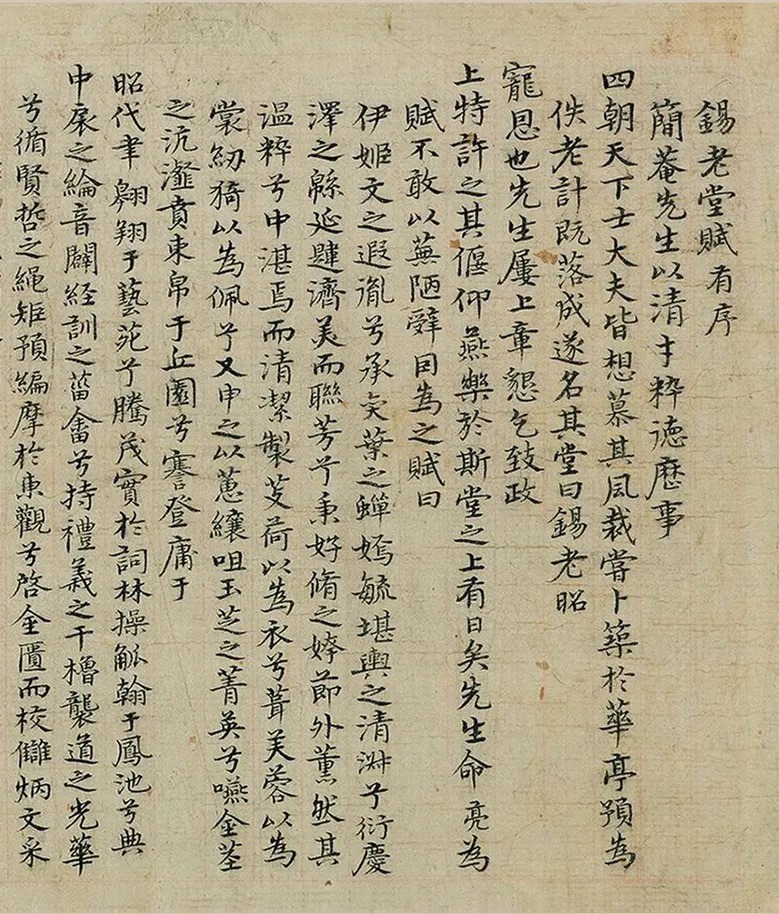 錫老堂賦有序
簡菴先生以清才粹德歷事
四朝天下士大夫皆想慕其風裁嘗卜築於華亭預為
佚老計既落成遂名其堂曰錫老昭
寵恩也先生屢上章懇乞致政
上特許之其偃仰燕樂於斯堂之上有日矣先生命亮為
賦不敢以蕪陋辭因為之賦曰
伊姬文之遐胤兮承奕葉之蟬嫣毓堪輿之清淑兮衍慶
澤之緜延肆濟美而聯芳兮秉好脩之姱節外薰然其
溫粹兮中湛焉而清潔製芰荷以為衣兮葺芙蓉以為
裳紉猗以為佩兮又申之以蕙纕咀玉芝之菁英兮嚥金莖
之沆瀣賁束帛于丘園兮謇登庸于
昭代聿翱翔于藝苑兮騰茂實於詞林操觚翰于鳳池兮典
中扆之綸音闢經訓之菑畬兮持禮義之干櫓襲道之光華
兮循賢哲之繩矩預編摩於東觀兮啓金匱而校讎炳文采